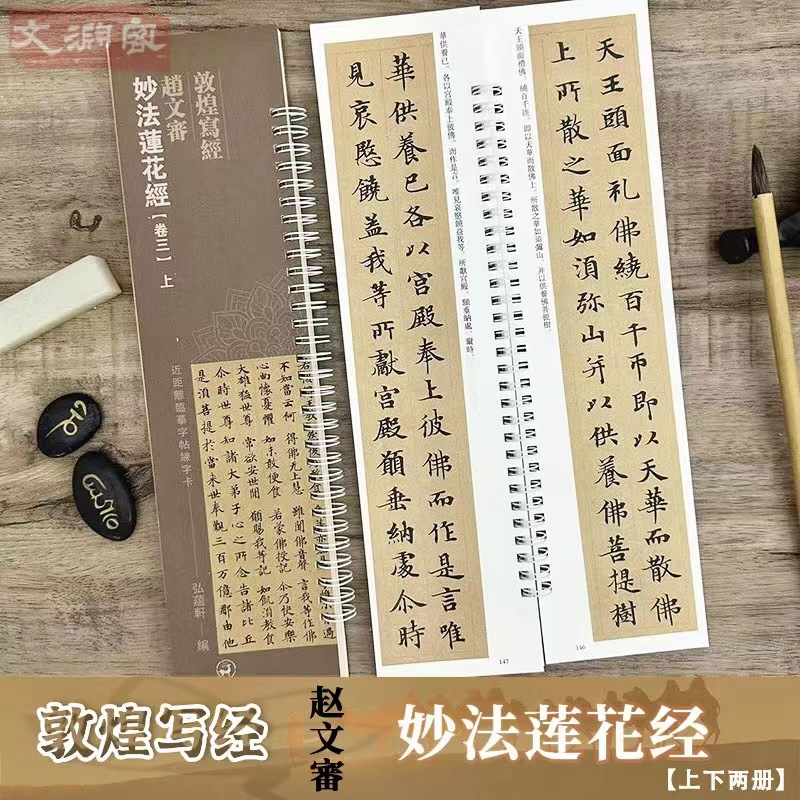 文淵閣
敦煌寫經
趙文審
妙法蓮花經【卷三】上
近距離臨摹字帖練字卡
弘蘊軒 編
不如當云何 得佛无上慧 雖聞佛音聲 言我等作佛
心尚懷憂懼 如未敢便食 若蒙佛授記 尒乃快安樂
大雄猛世尊 常欲安世間 願賜我等記 如飢湏教食
尒時世尊知諸大弟子心之所念告諸比丘
是湏菩提於當来世奉覲三百万億那由他
華供養已，各以宮殿奉上彼佛，而作是言，唯見哀愍饒益我等，所獻宮殿，願垂納處。爾時，
華供養已各以宮殿奉上彼佛而作是言唯
見哀愍饒益我等所獻宮殿願垂納處尒時
147
天王頭面禮佛，繞百千匝，即以天華而散佛上，所散之華如須彌山，并以供養佛菩提樹，
天王頭面礼佛繞百千帀即以天華而散佛
上所散之華如湏弥山并以供養佛菩提樹
146
敦煌写经
赵文審
妙法莲花经
【上下两册】